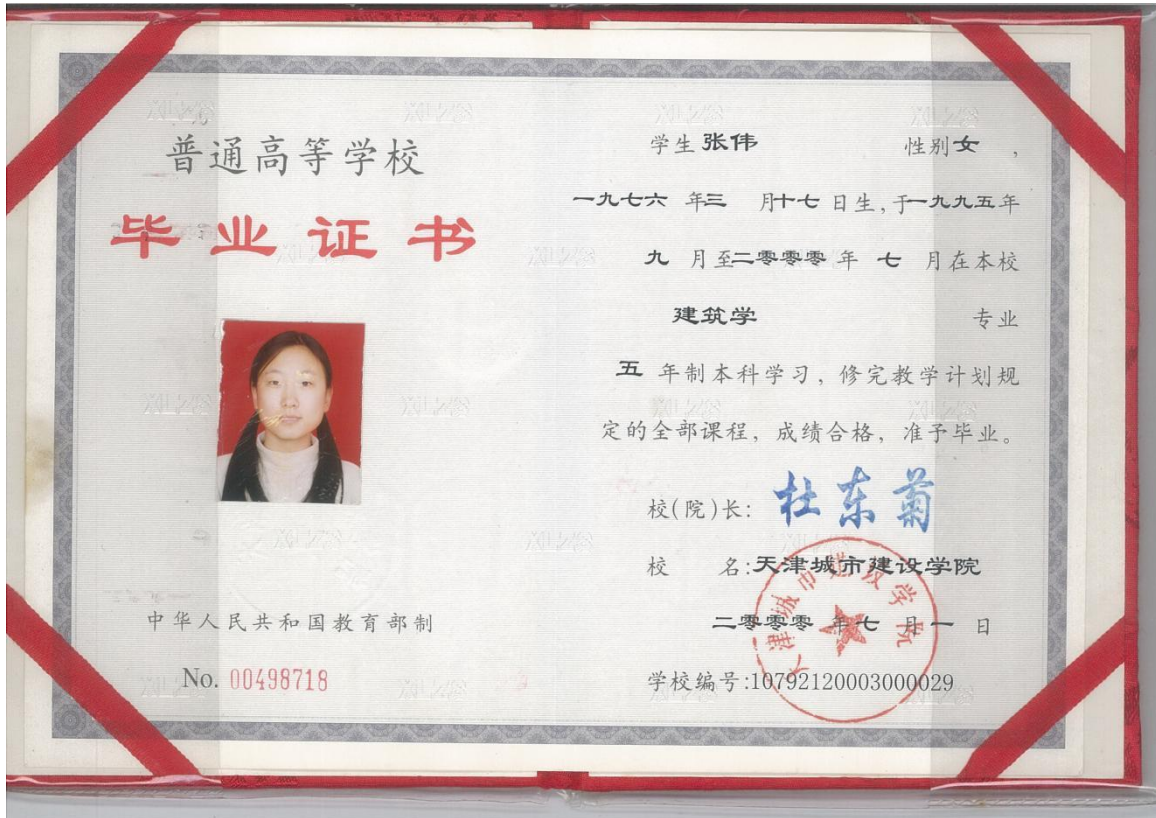 普通高等学校
毕业证书
中华人民共和国教育部制
No. 00498718
学生张伟 性别女，
一九七六年三月十七日生，于一九九五年
九月至二零零零年七月在本校
建筑学 专业
五年制本科学习，修完教学计划规
定的全部课程，成绩合格，准予毕业。
校(院)长：杜东菊
校名:天津城市建设学院
二零零零年七月一日
学校编号:10792120003000029
天津城市建设学院